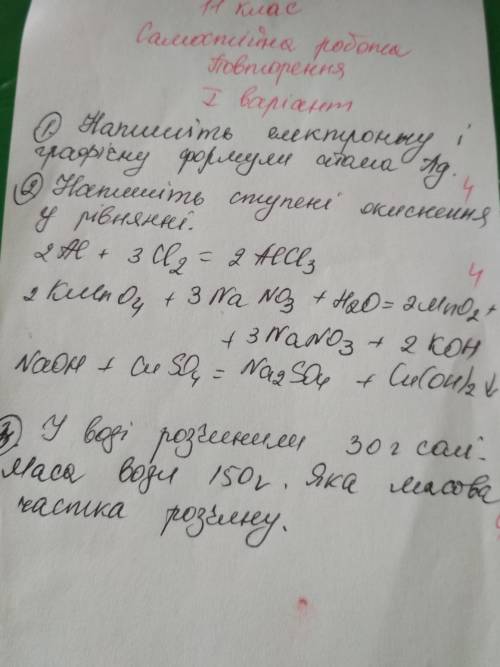 11 клас
Самостійна робота
Повторення
I варіант
1. Напишіть електронну і
графічну формули атома Ag.
4
2. Напишіть ступені окиснення
у рівнянні.
2Al + 3Cl₂ = 2AlCl₃
4
2KMnO₄ + 3NaNO₃ + H₂O = 2MnO₂ +
+ 3NaNO₃ + 2KOH
NaOH + CuSO₄ = Na₂SO₄ + Cu(OH)₂↓
3. У воді розчинили 30 г солі.
Маса води 150 г. Яка масова
частка розчину.